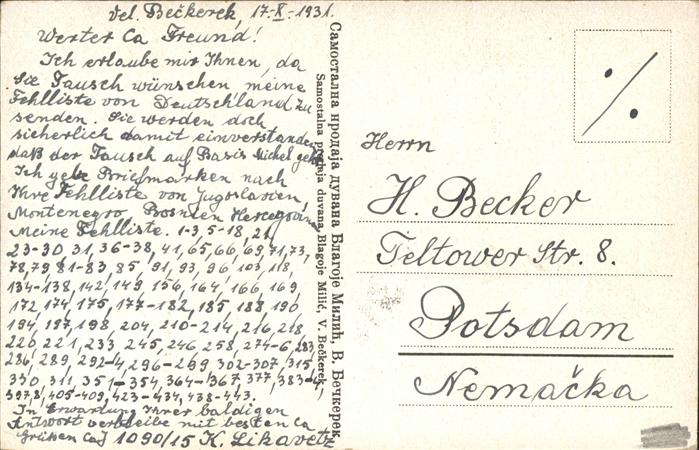 Vel. Bečkerek, 17-X-1931.
Werter Ca Freund!
Ich erlaube mir Ihnen, da
Sie Tausch wünschen meine
Fehlliste von Deutschland zu
senden. Sie werden doch
sicherlich damit einverstanden
daß der Tausch auf Basis Michel geht.
Ich gebe Briefmarken nach
Ihre Fehlliste von Jugoslavien,
Montenegro, Bosnien Hercegovina
Meine Fehlliste. 1-3, 5-18, 21,
23-30, 31, 36-38, 41, 65, 66, 69, 71, 73,
78, 79, 81-83, 85, 91, 93, 96, 103, 118,
134-138, 142, 149, 156, 164, 166, 169,
172, 174, 175, 177-182, 185, 188, 190
194, 197, 198, 204, 210-214, 216, 218,
220, 221, 233, 245, 246, 258, 274-6, 283,
286, 289, 292-4, 296-299, 302-307, 315,
330, 311, 351-354, 364-367, 377, 383-4,
397,8, 405-409, 423-434, 438-443.
In Erwartung Ihrer baldigen
Antwort verbleibe mit besten Ca
Grüssen CaJ 1090/15 K. Likavetz
Самостална продаја дувана Благоје Милић, В. Бечкерек
Samostalna prodaja duvana Blagoje Milić, V. Bečkerek,
%
Herrn
H. Becker
Teltower Str. 8.
Potsdam
Nemačka